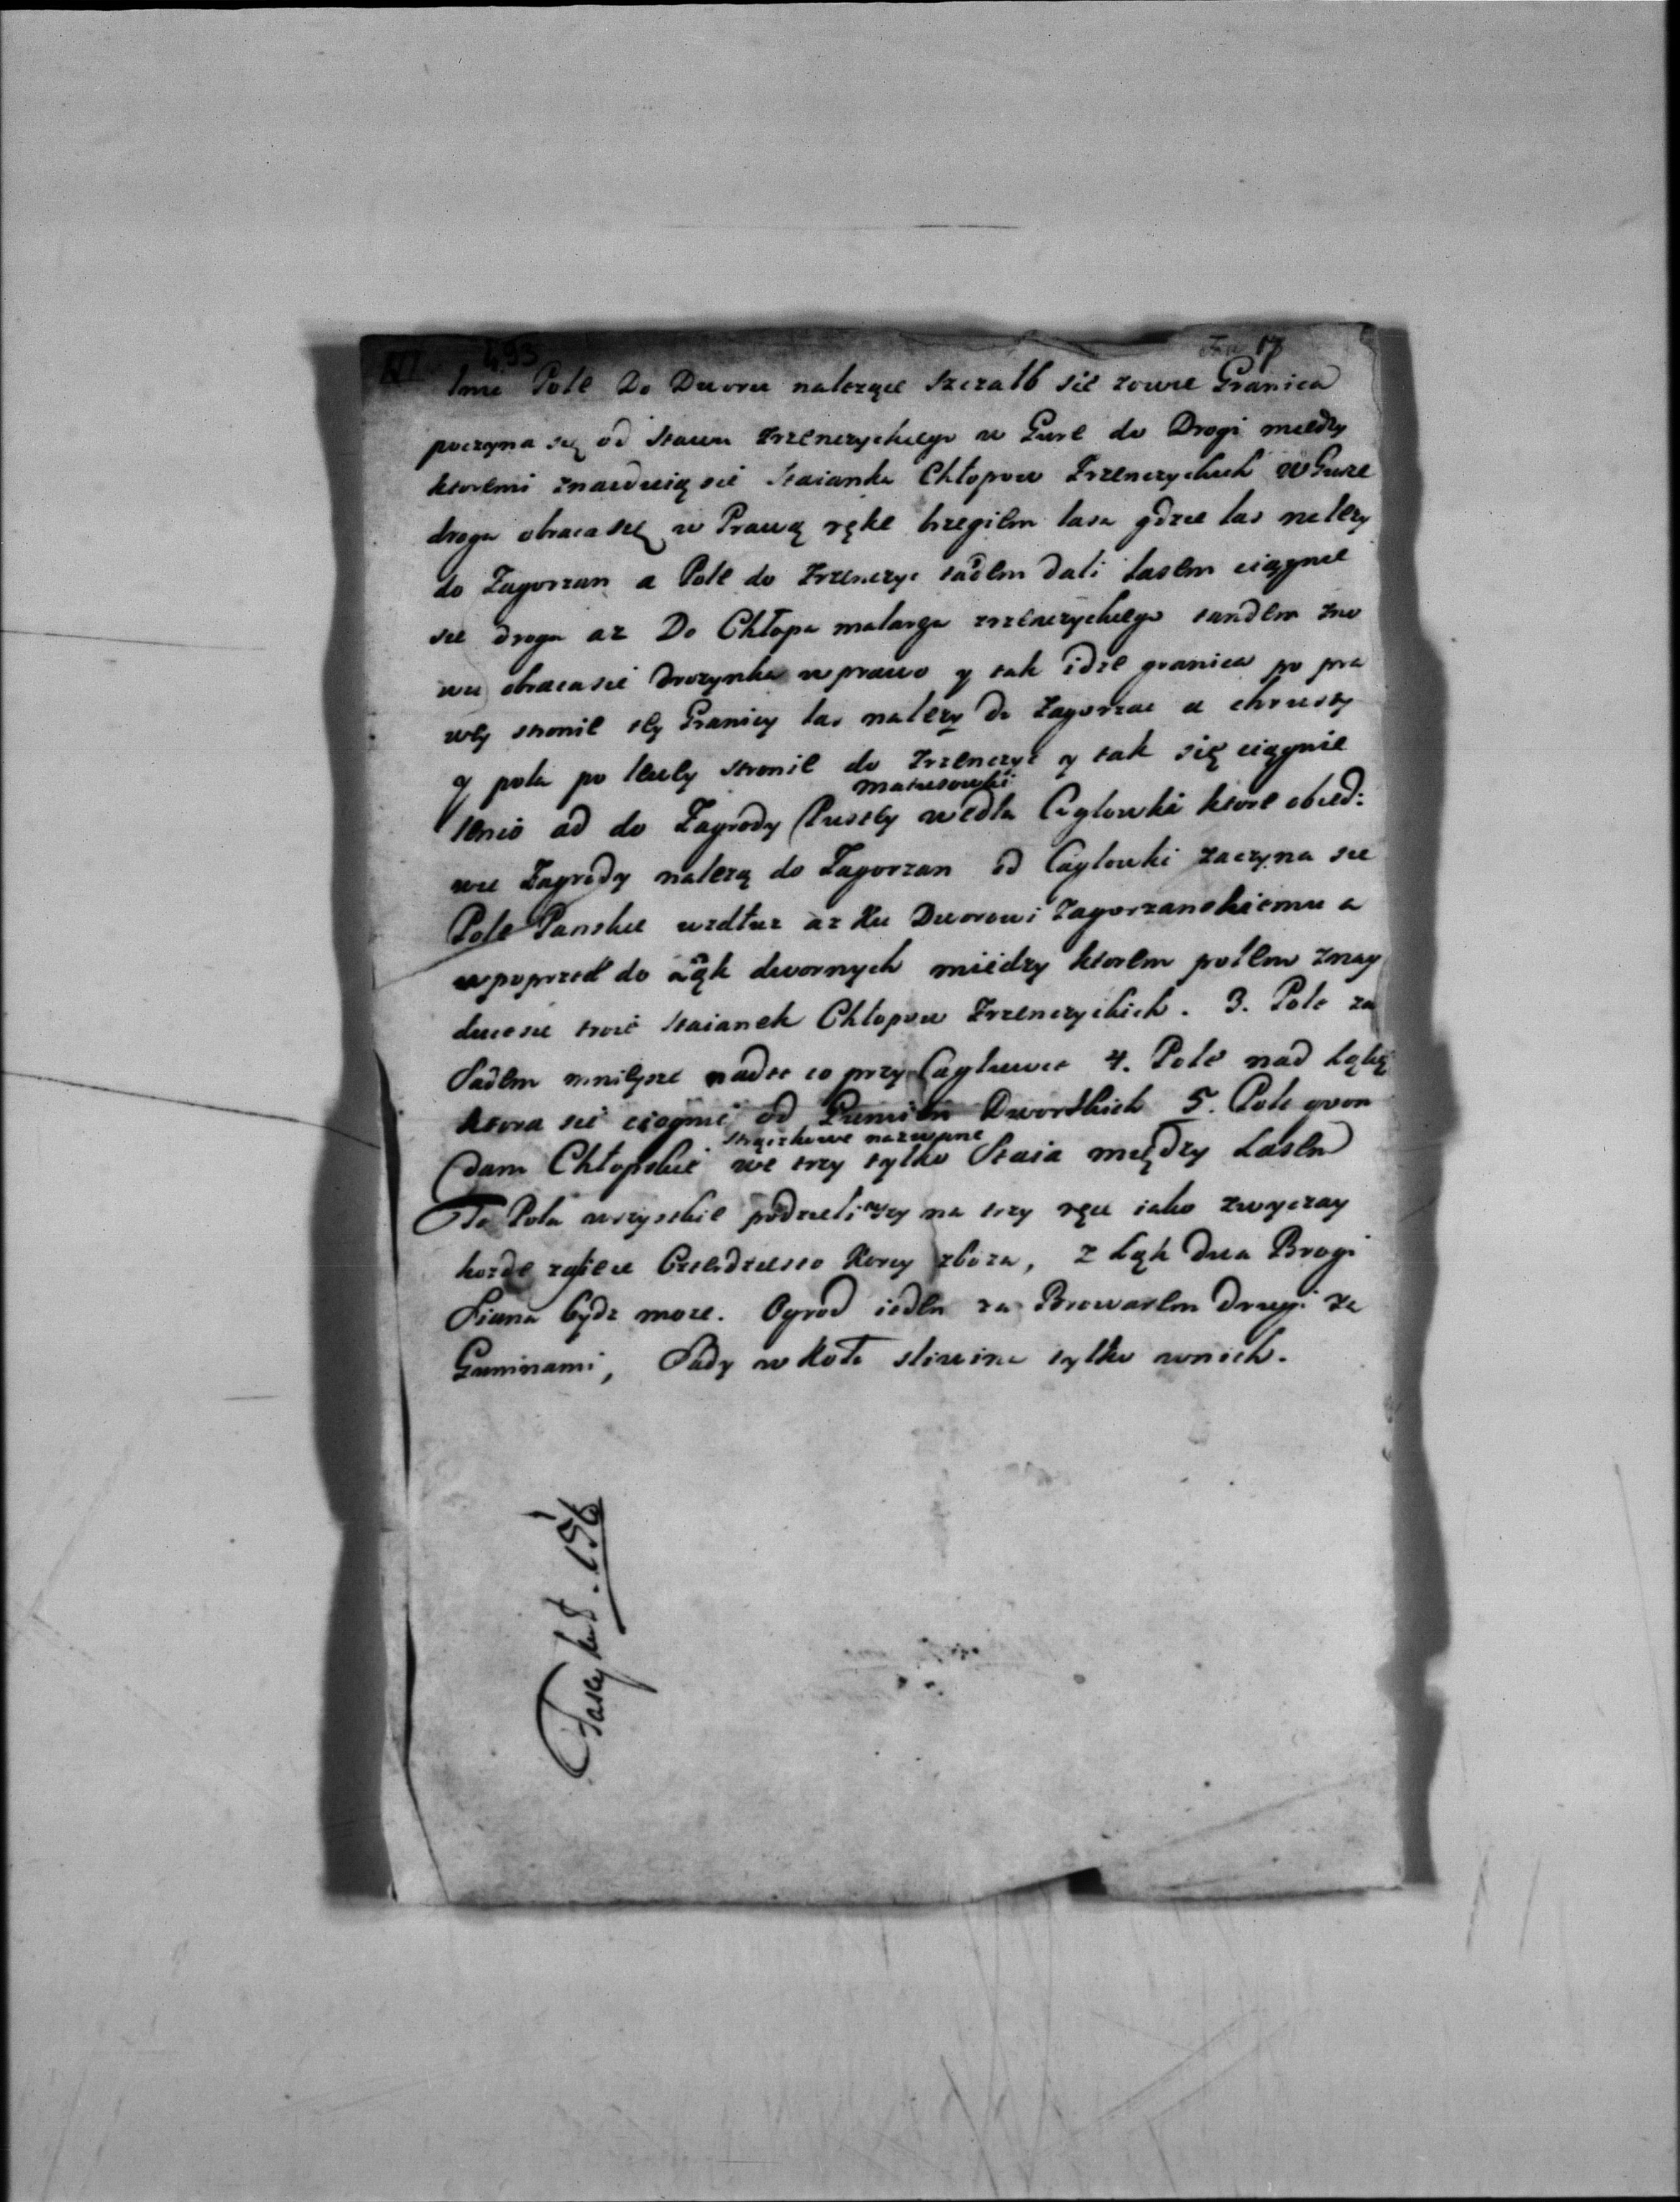 493
17
Pole Do Dworu nalezące sie zowie Granica
poczyna się od stawu Trzenczyckiego w Gure do Drogi miedzy
ktoremi znaiduią sie staianka Chłopow Trzenczyckich w Gurze
droga obraca się w Prawą ręke brzegiem lasa gdzie las nalezy
do Zagorzan a Pole do Trzenczyc tadem dali lasem ciągnie
sie droga az Do Chłopa malarza trzenczyckiego tandem zno
wu obraca sie drozynka w prawo y tak idzie granica po pra
wey stronie tey Granicy las nalezy do Zagorzan a chrusty
y pola po lewey stronie do Trzenczyc y tak się ciągnie
matusowki
ad do Zagrody Pustey wedla Cąglowki ktore obied:
wie Zagrody nalezą do Zagorzan od Cąglowki zaczyna sie
Pole Panskie wzdłuz az Ku Dworowi Zagorzanskiemu a
w poprzed do Ląk dwornych miedzy ktorem polem znay
duie sie troie staianek Chłopow Trzenczyckich. 3. Pole za
Sadem mnieysze nad to co przy Cągluwce 4. Pole nad Ląką
ktora sie ciągnie od Gumien Dworskich 5. Pole
strączkowe nazwane
Chłopskie we trzy tylko Staia między Lasem
Te Pola wszystkie podzieliwszy na trzy ręce iako zwyczay
kozde Korcy zboza, z Ląk dwa Brogi
Siana bydz moze. Ogrod ieden za Browarem drugi za
Guminami, Sady w koło sliwina tylko wnich.
Fascykuł. 156